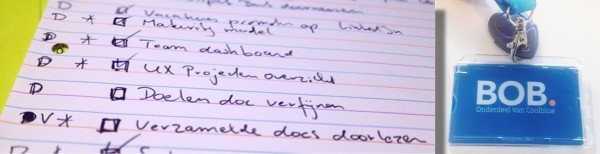 D Vacatures promoten op LinkedIn
D * Maturity model
D * Team dashboard
D * UX Projecten overzicht
D Doelen doc verfijnen
D V * Verzamelde docs doorlezen
BOB.
Onderdeel van Coolblue